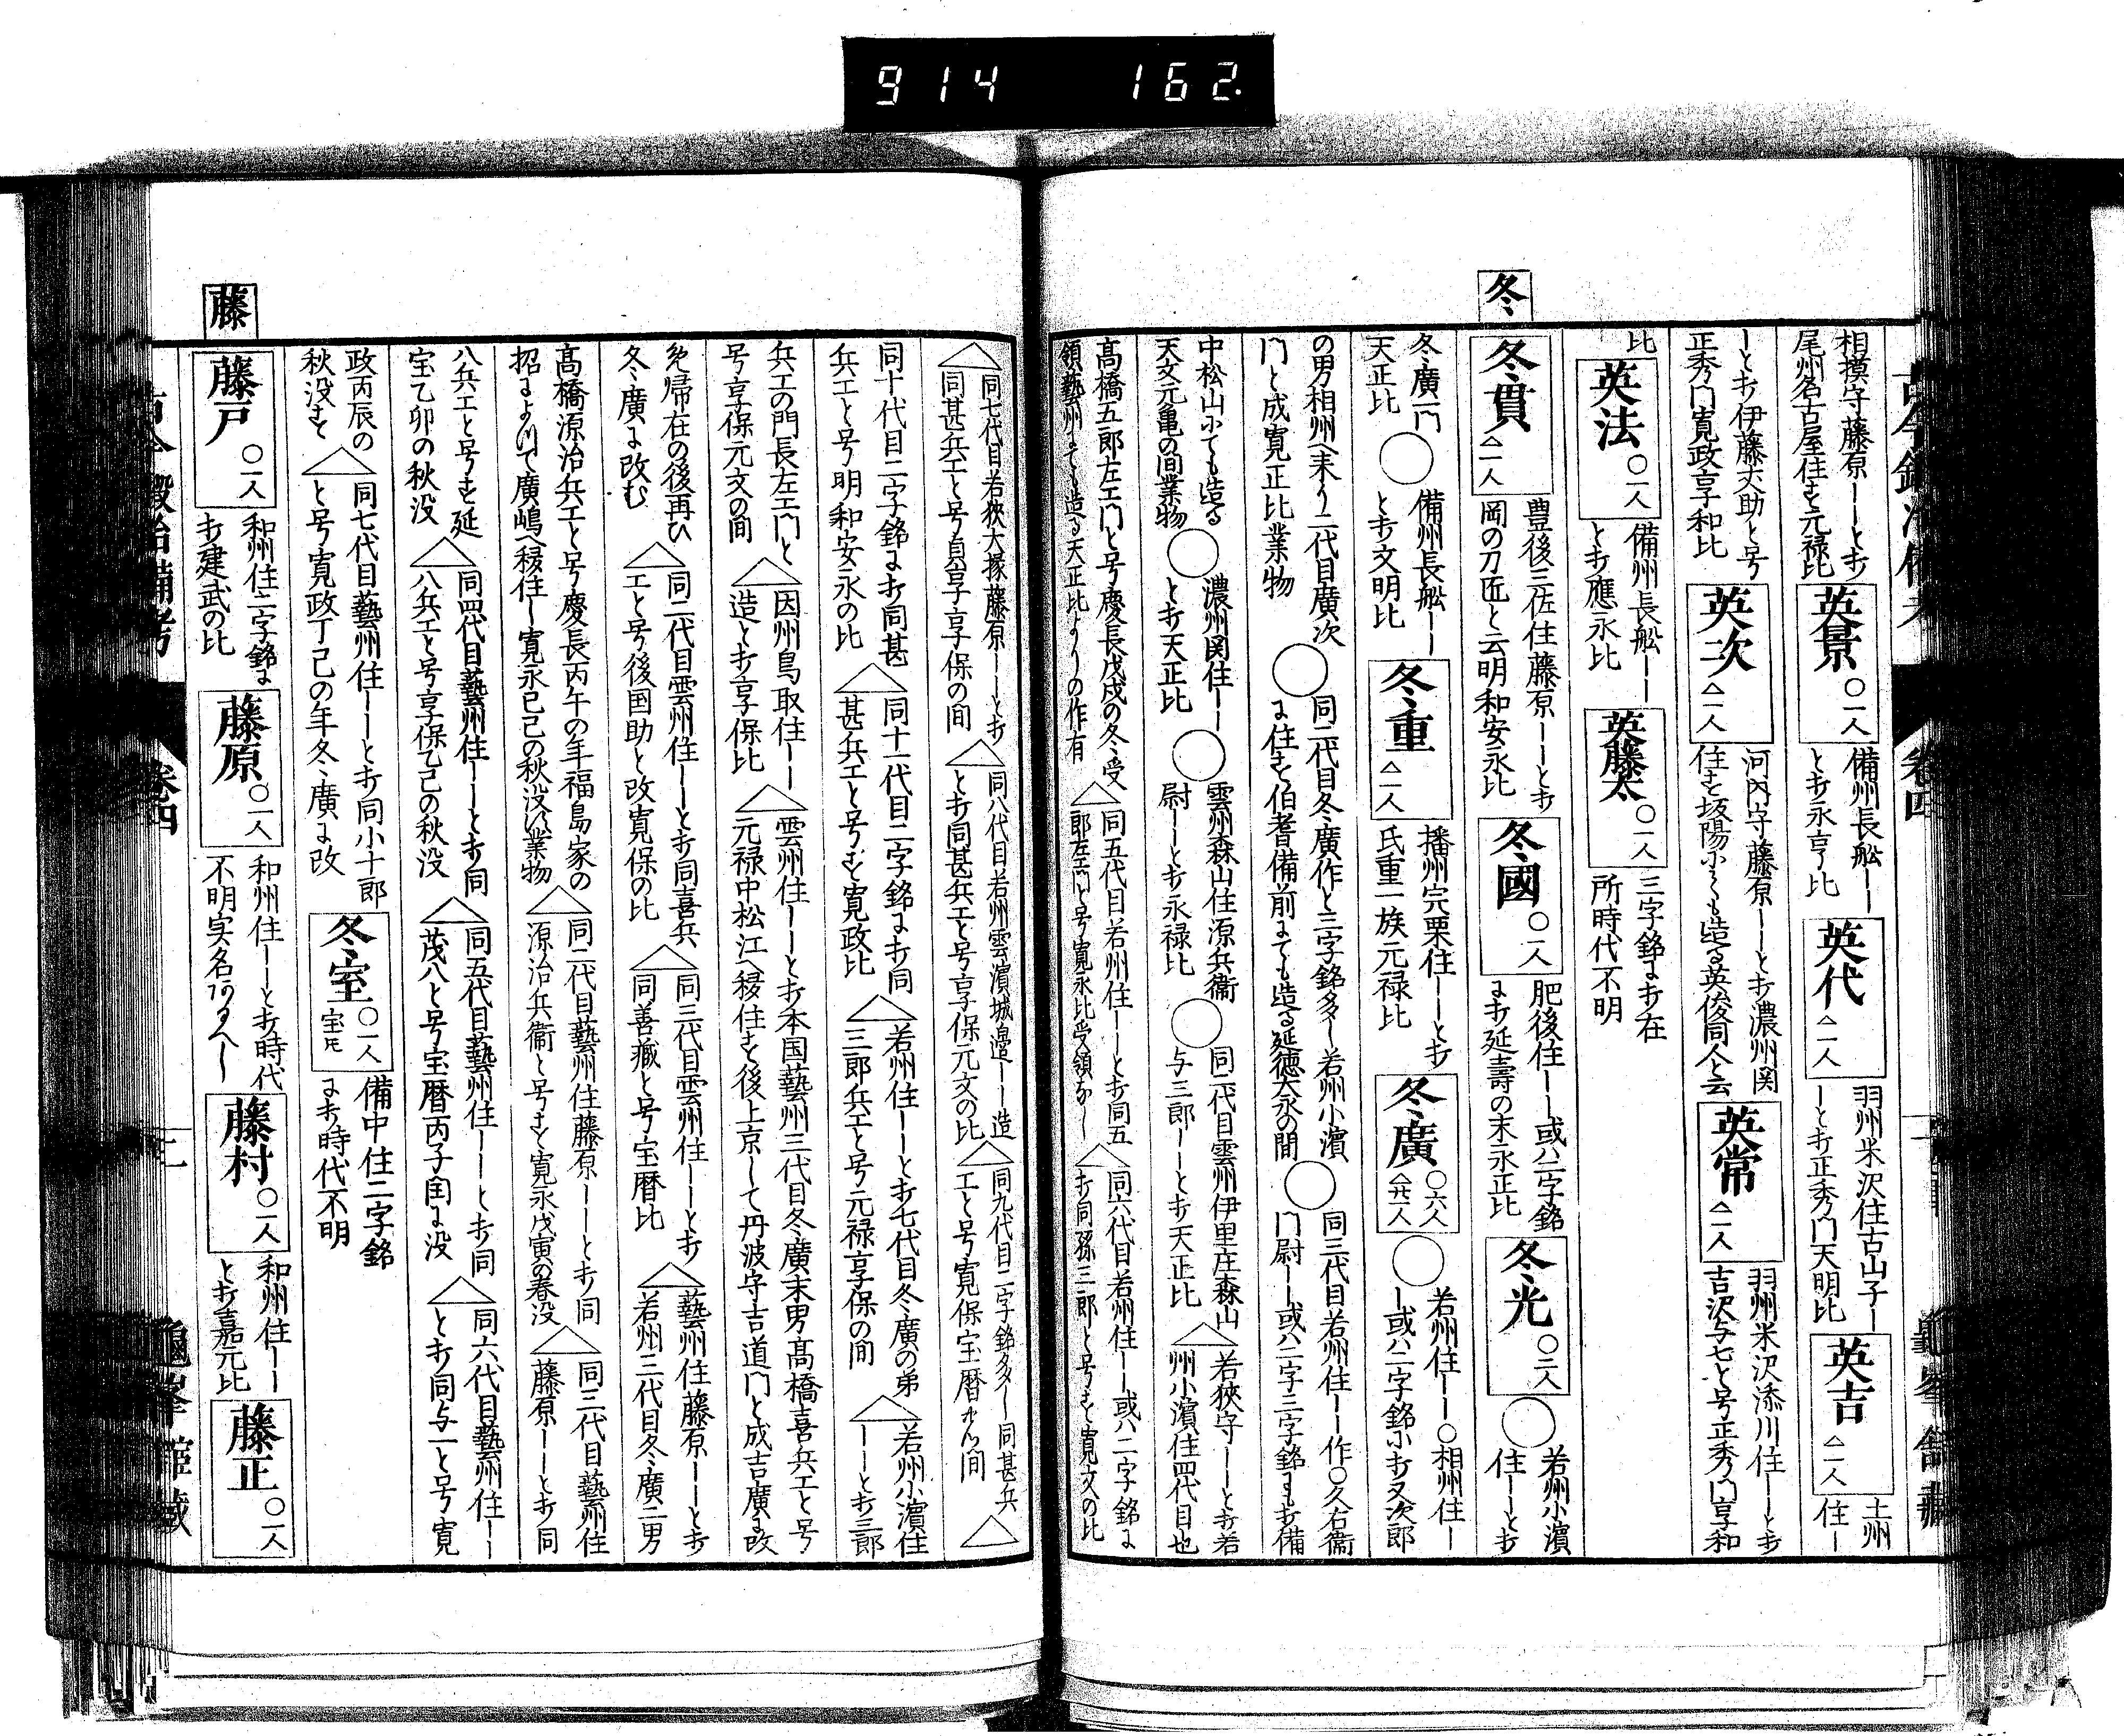 914 162.
冬
相摸守藤原ーーと打
尾州名古屋住す元禄比
英景 ○一人
備州長舩ーー
と打永享比
英代 △一人
羽州米沢住古山子ー
ーと打正秀門天明比
英吉 △一人
土州
住ー
ーと打伊藤丈助と号
正秀門寛政享和比
英次 △一人
河内守藤原ーーと打濃州関
住す坂陽にても造る英俊同人と云
英常 △一人
羽州米沢添川住ーーと打
吉沢与七と号正秀門享和
比
英法 ○一人
備州長舩ーー
と打應永比
英藤太 ○一人
三字銘に打在
所時代不明
冬貫 △一人
豊後三佐住藤原ーーと打
岡の刀匠と云明和安永比
冬國 ○一人
肥後住ーー或ハ二字銘
に打延壽の末永正比
冬光 ○二人
○若州小濱
住ーーと打
冬廣一門
天正比
○備州長舩ーー
と打文明比
冬重 △一人
播州宍栗住ーーと打
氏重一族元禄比
冬廣 ○六人 △廿一人
○若州住ーー○相州住ー
ー或ハ二字銘に打又次郎
の男相州へ来り二代目廣次
門と成寛正比業物
○同二代目冬廣作と三字銘多し若州小濱
に住す伯耆備前にても造る延徳大永の間
○同三代目若州住ーー作○久右衞
門尉ーー或ハ二字三字銘にも打備
中松山にても造る
天文元亀の間業物
○濃州関住ーー
と打天正比
○雲州森山住源兵衞
尉ーーと打永禄比
○同二代目雲州伊里庄森山
与三郎ーーと打天正比
△若狹守ーーと打若
州小濱住四代目也
髙橋五郎左エ門と号慶長戊戌の冬受
領藝州にても造る天正比よりの作有
△同五代目若州住ーーと打同五
郎左エ門と号寛永比受領なし
△同六代目若州住ーー或ハ二字銘に
打同孫三郎と号す寛文の比
△同七代目若狹大掾藤原ーーと打
同甚兵エと号貞享享保の間
△同八代目若州雲濱城邉ーー造
と打同甚兵エと号享保元文の比
△同九代目二字銘多し同甚兵
エと号寛保宝暦の間
△
同十代目二字銘に打同甚
兵エと号明和安永の比
△同十一代目二字銘に打同
甚兵エと号す寛政比
△若州住ーーと打七代目冬廣の弟
三郎兵エと号元禄享保の間
△若州小濱住
ーーと打三郎
兵エの門長左エ門と
号享保元文の間
△因州鳥取住ーー
造と打享保比
△雲州住ーーと打本国藝州三代目冬廣末男髙橋喜兵エと号
元禄中松江へ移住す後上京して丹波守吉道門と成吉廣に改
め帰在の後再ひ
冬廣に改む
△同二代目雲州住ーーと打同喜兵
エと号後国助と改寛保の比
△同三代目雲州住ーーと打
同善藏と号宝暦比
△藝州住藤原ーーと打
若州三代目冬廣二男
髙橋源治兵エと号慶長丙午の年福島家の
招によつて廣嶋へ移住し寛永己巳の秋没す業物
△同二代目藝州住藤原ーーと打同
源治兵衞と号す寛永戊寅の春没
△同三代目藝州住
藤原ーーと打同
八兵エと号す延
宝乙卯の秋没
△同四代目藝州住ーーと打同
八兵エと号享保乙巳の秋没
△同五代目藝州住ーーと打同
茂八と号宝暦丙子閏に没
△同六代目藝州住ーー
と打同与一と号寛
政丙辰の
秋没す
△同七代目藝州住ーーと打同小十郎
と号寛政丁己の年冬廣に改
冬室 ○一人
備中住二字銘
に打時代不明
藤
藤戸 ○一人
和州住二字銘に
打建武の比
藤原 ○一人
和州住ーーと打時代
不明実名可有へし
藤村 ○一人
和州住ーー
と打嘉元比
藤正 ○一人
古今鍛冶備考
卷四
龜峯館藏